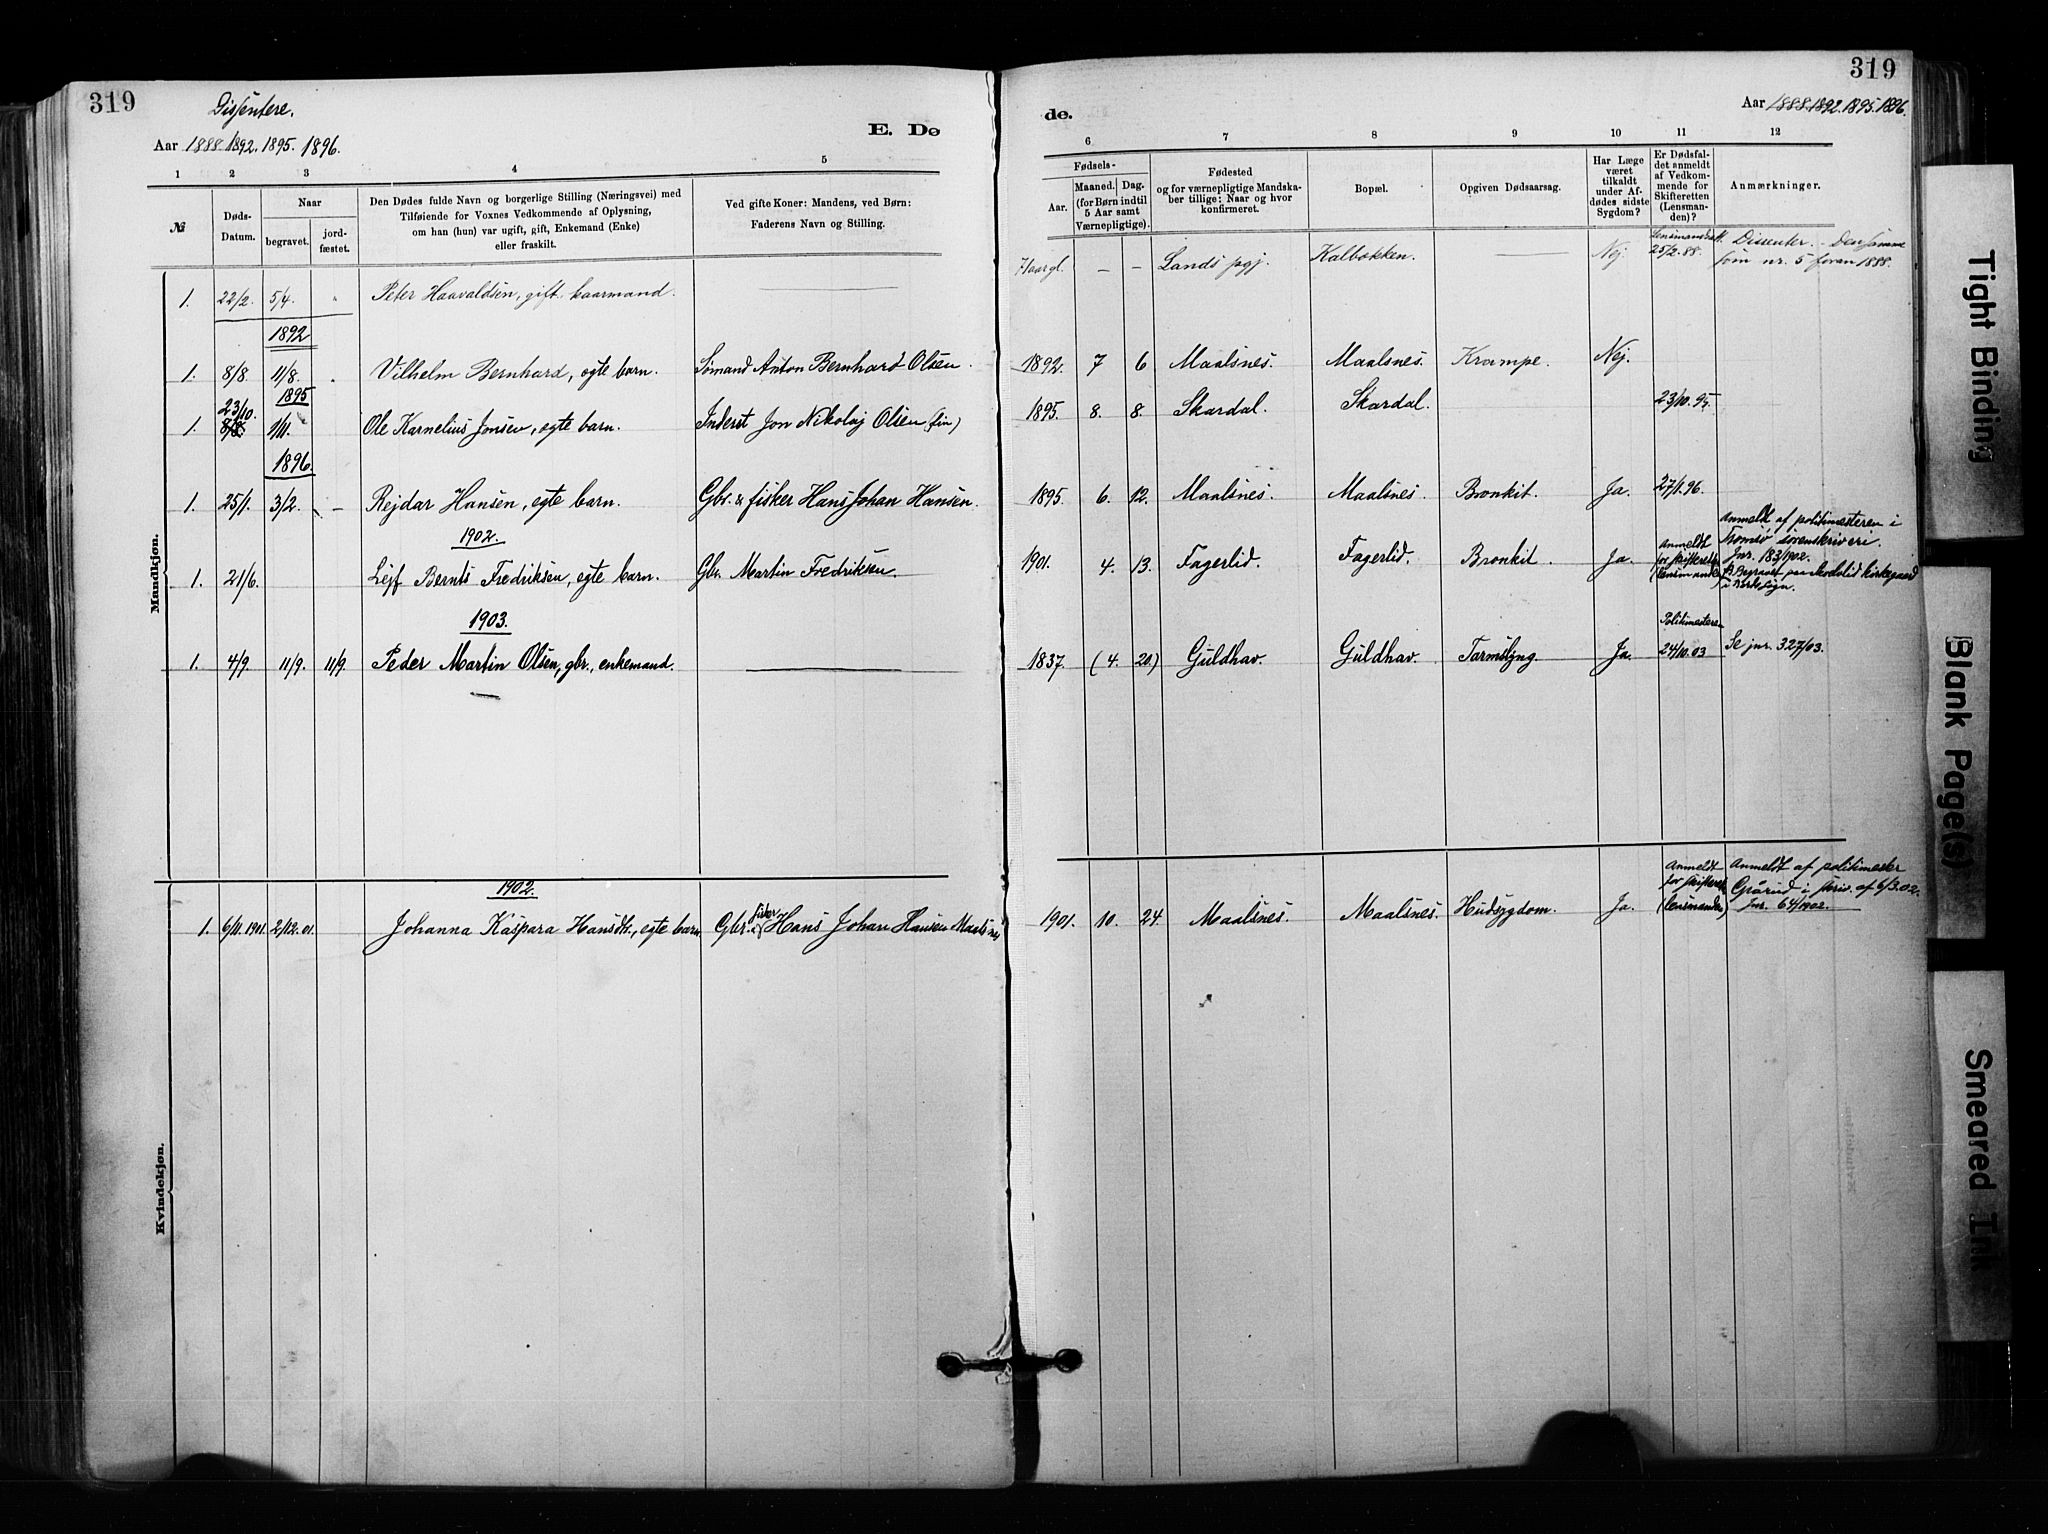 319
Dissentere.
Aar 1888. 1892. 1895. 1896.
E. Dø
1 2 3 4 5
№
Døds-Datum.
Naar
begravet.
jord-
fæstet.
Den Dødes fulde Navn og borgerlige Stilling (Næringsvei) med
Tilføiende for Voxnes Vedkommende af Oplysning,
om han (hun) var ugift, gift, Enkemand (Enke)
eller fraskilt.
Ved gifte Koner: Mandens, ved Børn:
Faderens Navn og Stilling.
Mandkjøn.
1. 22/2. 5/4. " Peter Haavaldsen, gift kaarmand.
1892
1. 8/8. 11/8. Vilhelm Bernhard, egte barn. Sømand Anton Bernhard Olsen.
1895
23/10.
1. 8/8. 1/11. Ole Karnelius Jonsen, egte barn. Inderst Jon Nikolaj Olsen (fin)
1896.
1. 25/1. 3/2. – Rejdar Hansen, egte barn. Gbr. & fisker Hans Johan Hansen.
1902.
1. 21/6. Lejf Bernts Fredriksen, egte barn. Gbr. Martin Fredriksen.
1903.
1. 4/9. 11/9. 11/9. Peder Martin Olsen, gbr., enkemand.
Kvindekjøn.
1902.
1. 6/11. 1901. 2/12. 01. Johanna Kaspara Hansdtr., egte barn. Gbr. & fisker Hans Johan Hansen Maalsnes
319
Aar 1888. 1892. 1895. 1896.
de.
6 7 8 9 10 11 12
Fødsels-
Aar.
Maaned. Dag.
(for Børn indtil
5 Aar samt
Værnepligtige).
Fødested
og for værnepligtige Mandska-
ber tillige: Naar og hvor
konfirmeret.
Bopæl.
Opgiven Dødsaarsag.
Har Læge
været
tilkaldt
under Af-
dødes sidste
Sygdom?
Er Dødsfal-
det anmeldt
af Vedkom-
mende for
Skifteretten
(Lensman-
den)?
Anmærkninger.
– – Lands pgj. Kalbakken. Nej. 25/2. 88. Dissenter. – Den samme
som nr. 5 foran 1888.
1892. 7 6 Maalsnes. Maalsnes. Krampe. Nej.
1895. 8. 8. Skardal. Skardal. 23/10. 95.
1895. 6. 12. Maalsnes. Maalsnes. Bronkit. Ja. 27/1. 96.
1901. 4. 13. Fagerlid. Fagerlid. Bronkit. Ja. Anmeldt
for skifteretten
(lensmanden)
Anmeldt af politimesteren i
Tromsø sorenskriveri.
Jnr. 183/1902.
Begravet paa kirkegaard
i sogn.
1837. (4. 20.) Guldhav. Guldhav. Tarmslyng. Ja. Politimesteren
24/10. 03 Se jnr. 327/03.
1901. 10. 24. Maalsnes. Maalsnes. Hudsygdom. Ja. Anmeldt
for skifteret
(lensmanden)
Anmeldt af politimester
i skriv. af 6/3. 02.
Jnr. 64/1902.
Tight Binding
Blank Page(s)
Smeared Ink